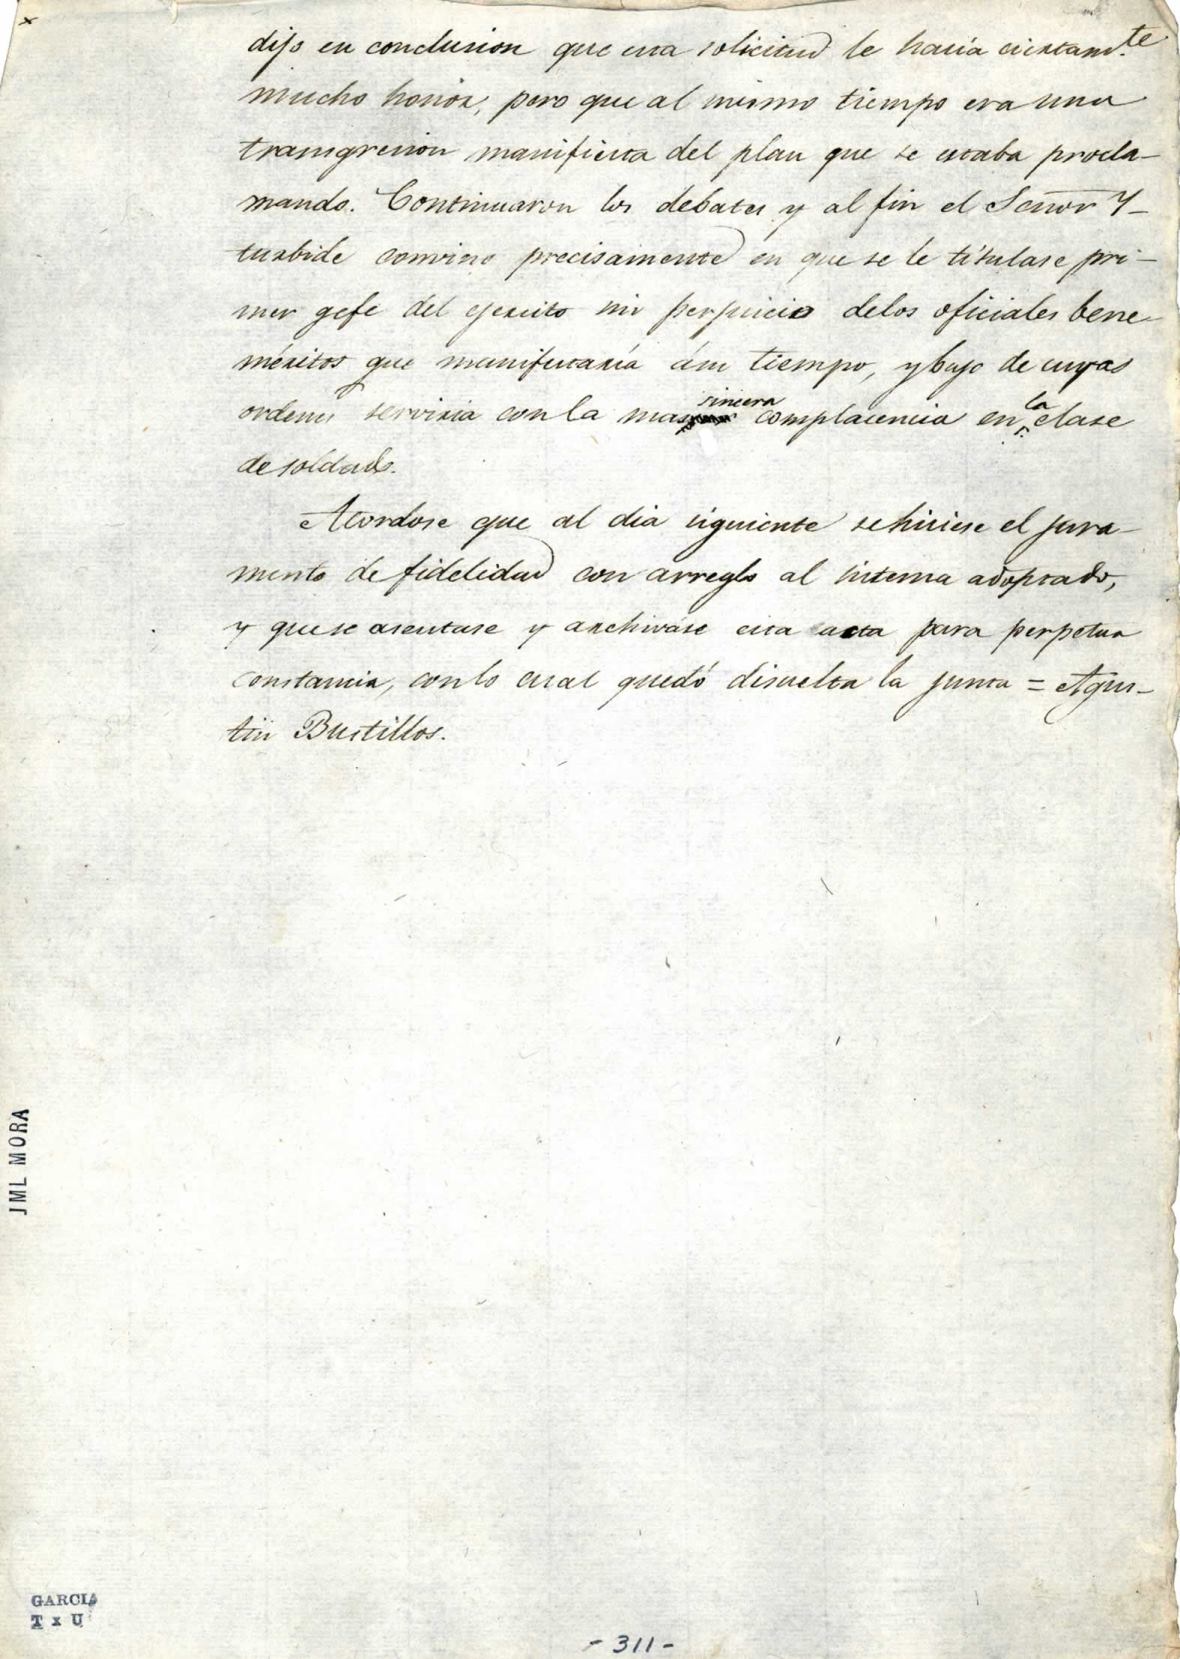 dijo en conclusion que esa solicitud le hacía ciertam.te
mucho honor, pero que al mismo tiempo era una
transgresion manifiesta del plan que se estaba procla-
mando. Continuaron los debates y al fin el Señor Y-
turbide convino precisamente en que se le titulase pri-
mer gefe del ejercito sin perjuicio delos oficiales bene-
méritos que manifestaría ásu tiempo, y bajo de cuyas
ordenes serviria con la mas sincera complacencia en la clase
de soldado.
Acordose que al dia siguiente se hiciese el jura-
mento de fidelidad con arreglo al sistema adoptado,
y que se asentase y archivase esta acta para perpetua
constancia, con lo cual quedó disuelta la junta = Agus-
tin Bustillos.
JML MORA
GARCIA
T x U
- 311 -